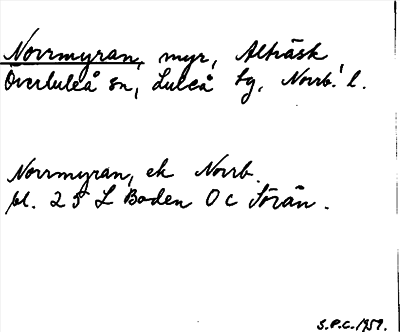 Norrmyran, myr, Alträsk,
Överluleå sn, Luleå tg, Norrb. l.
Norrmyran, ek Norrb.
bl. 25 L Boden Oc Sörån.
S.P.C. 1959.